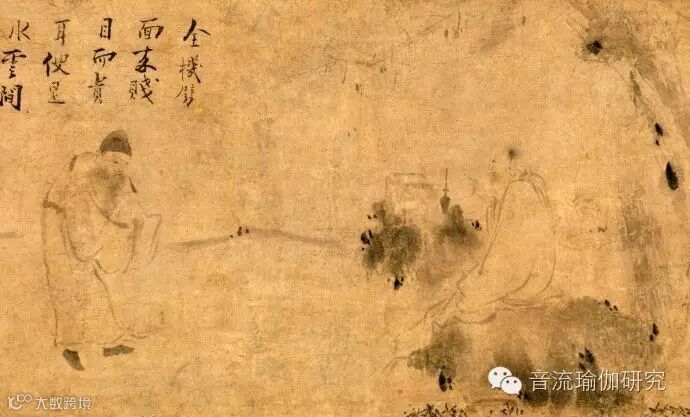 全機劈
面來賤
目而貴
耳便是
水雲間
音流瑜伽研究
大数跨境